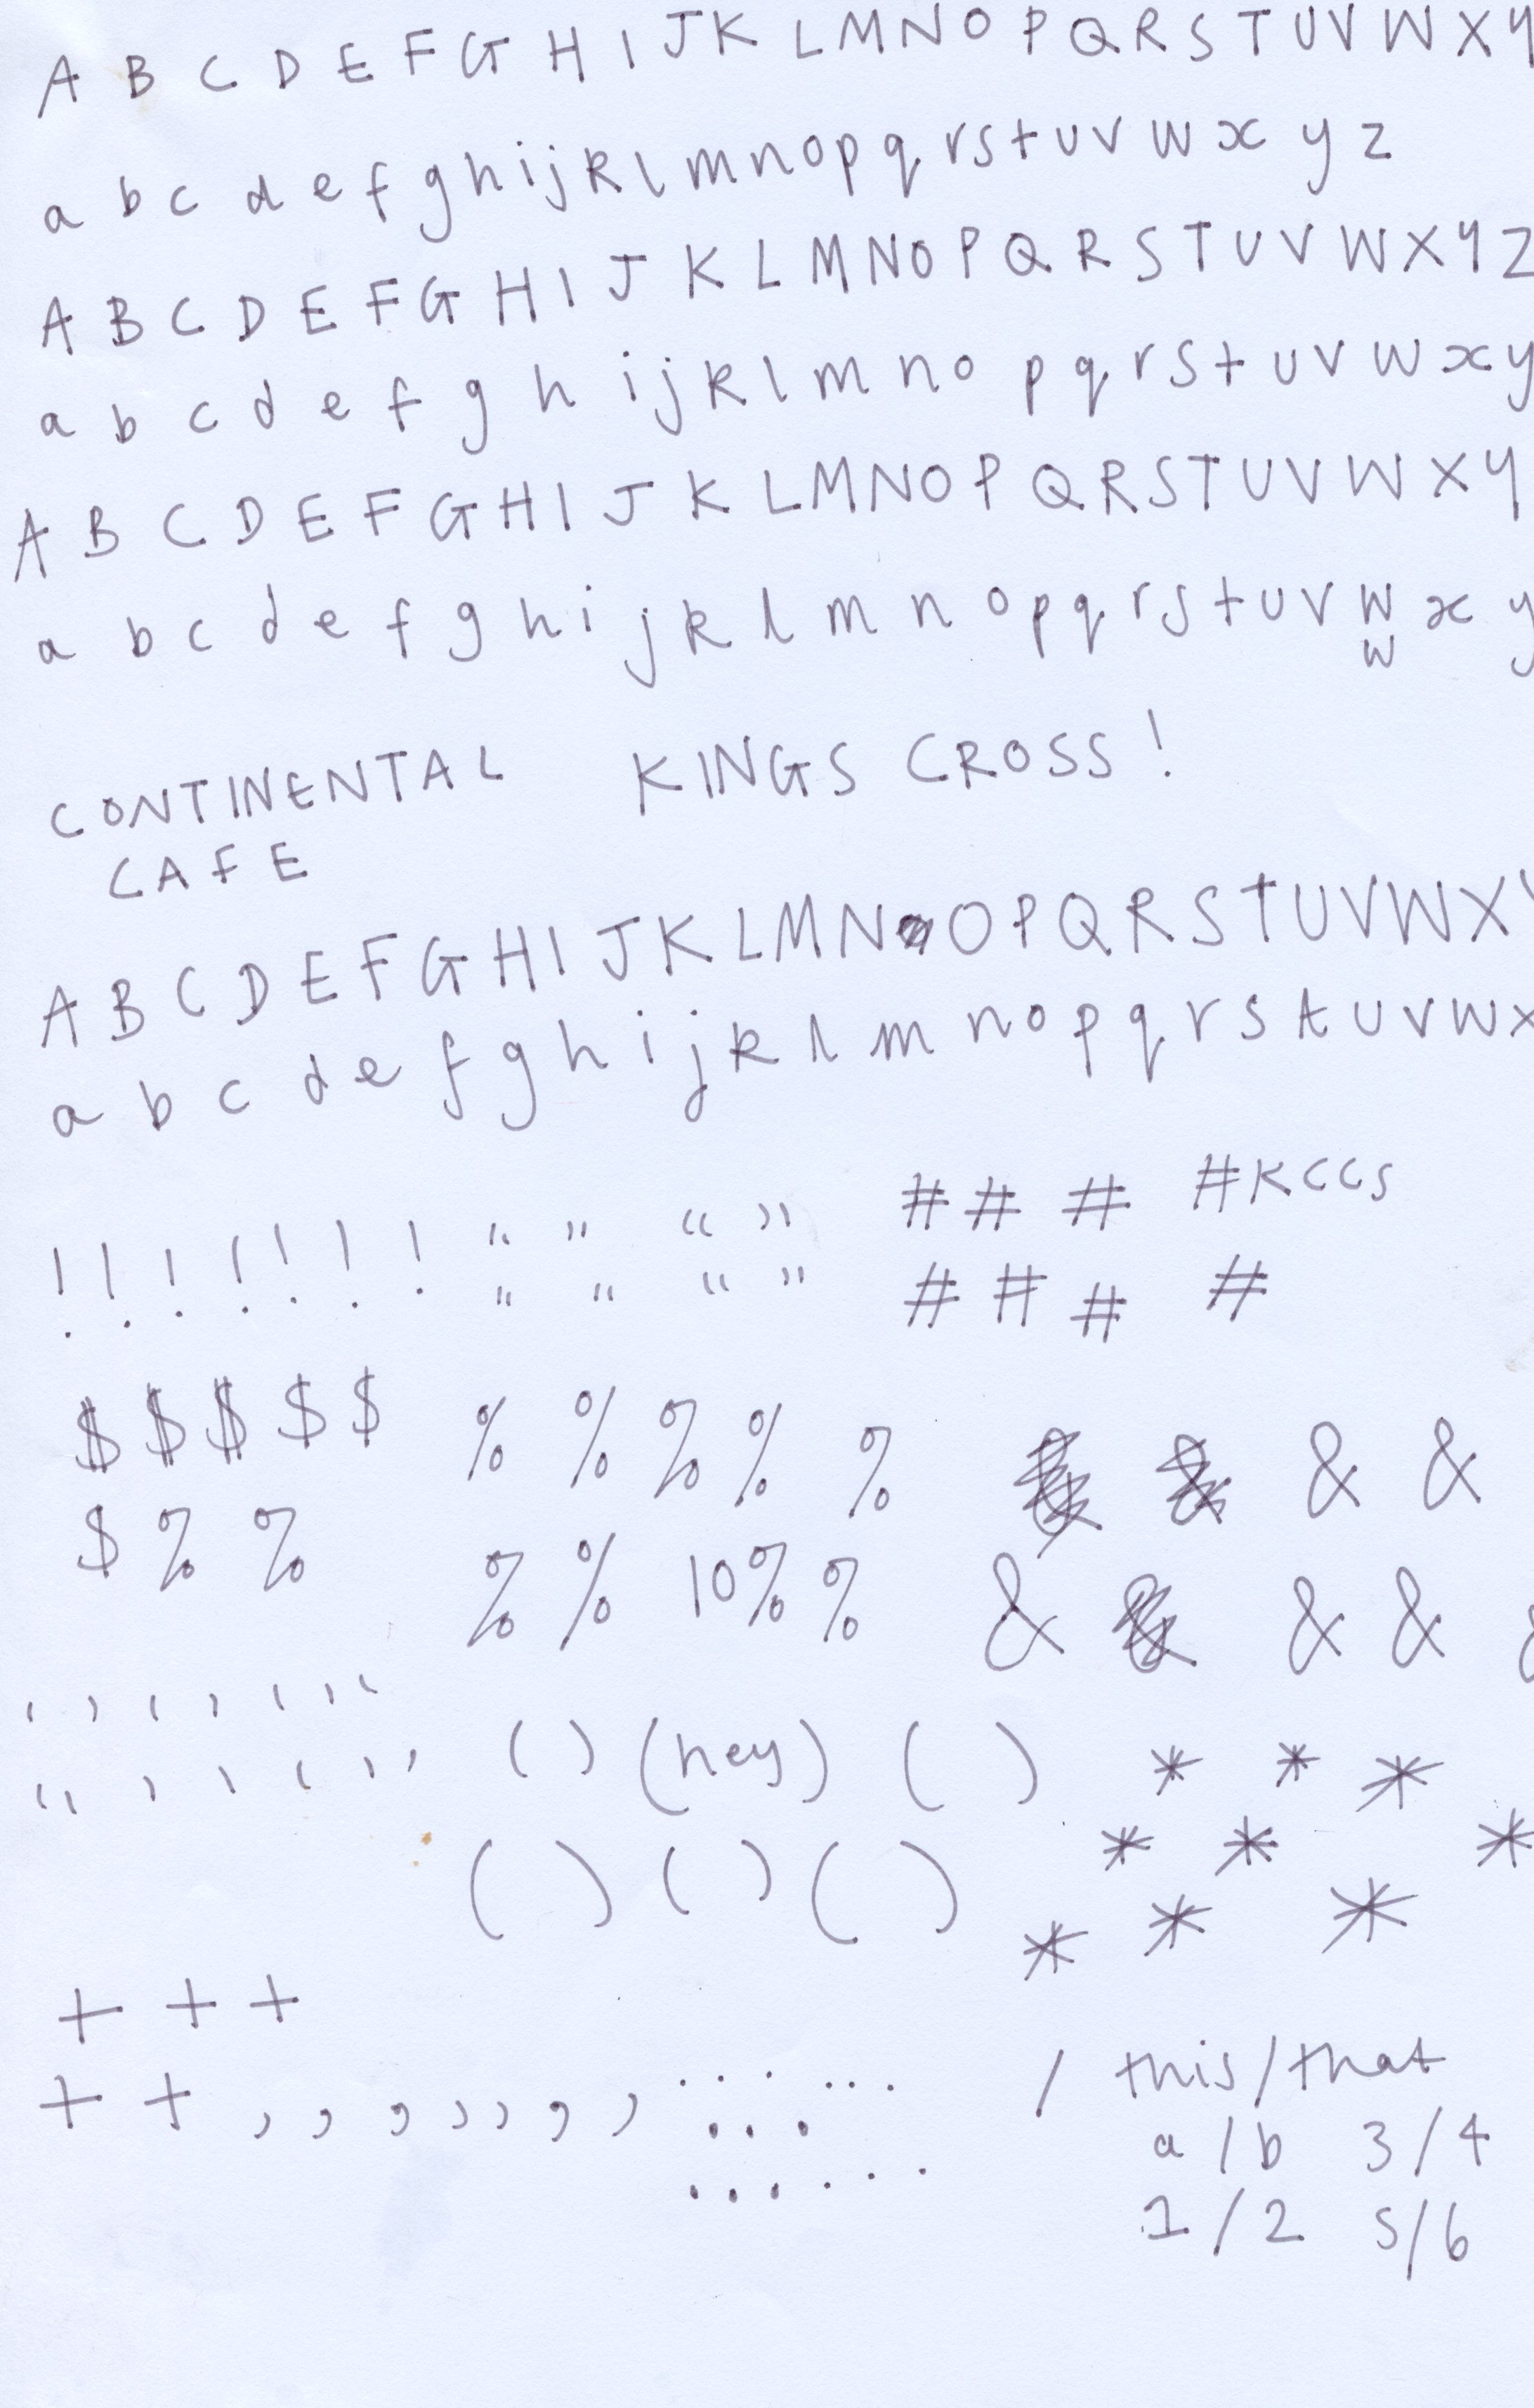 A B C D E F G H I J K L M N O P Q R S T U V W X Y
a b c d e f g h i j k l m n o p q r s t u v w x y z
A B C D E F G H I J K L M N O P Q R S T U V W X Y Z
a b c d e f g h i j k l m n o p q r s t u v w x y
A B C D E F G H I J K L M N O P Q R S T U V W X Y
a b c d e f g h i j k l m n o p q r s t u v w x y
w
CONTINENTAL KINGS CROSS!
CAFE
A B C D E F G H I J K L M N O P Q R S T U V W X Y
a b c d e f g h i j k l m n o p q r s t u v w x
! ! ! ! ! ! ! “ ” “ ” # # # #KCCS
" " “ ” # # # #
$ $ $ $ $ % % % % % & &
$ % % % % 10% % & & & &
‘ ’ ‘ ’ ‘ ’ ‘ ‘
“ ’ ’ ‘ ’ ’ ( ) (hey) ( ) * * *
( ) ( ) ( ) * * *
* * *
+ + +
+ + , , , , , , , . . . . . . / this/that
. . . a/b 3/4
. . . . . . 1/2 5/6